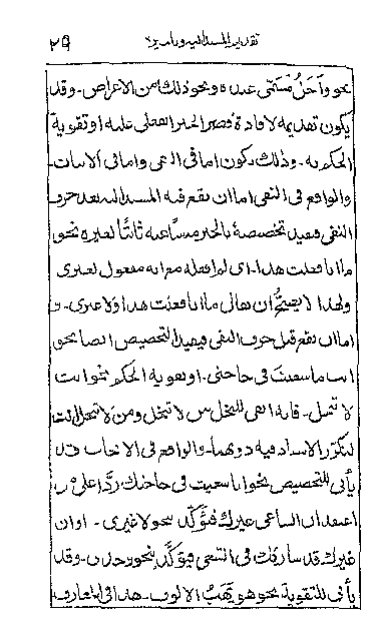 تقديم المسند اليه وتاخيره ٢٩
نحو وأجَلٌ مُسَمًّى عنده ونحو ذلك من الاغراض۔ وقد
يكون تقديمه لافادة قصر الخبر الفعلى عليه او تقوية
الحكم به۔ وذلك يكون اما فى النفى واما فى الاثبات۔
والواقع فى النفى اما ان يقع فيه المسند اليه بعد حرف
النفى فيفيد تخصيصهٗ بالخبر منفيا عنه ثابتًا لغيره نحو
ما انا فعلت هذا۔ اى لم افعله مع انه مفعول لغيرى
ولهذا لا يصحُّ ان يقال ما انا فعلت هذا ولا غيرى۔ و
اما ان يقع قبل حرف النفى فيفيد التخصيص ايضا نحو
انت ما سعيت فى حاجتى۔ او تقوية الحكم نحو انت
لا تبخل۔ فانه انفى للبخل من لا تبخل ومن لا تبخل انت
لتكرّر الاسناد فيه دونهما۔ والواقع فى الاثبات قد
يأتى للتخصيص نحو انا سعيت فى حاجتك ردًّا على من
اعتقد ان الساعى غيرك فيؤكَّد بنحو لا غيرى ۔ او ان
غيرك قد شاركك فى السعى فيؤكَّد بنحو وحدى۔ وقد
يأتى للتقوية نحو هو يَهَبُ الالوف۔ هذا فى المعارف